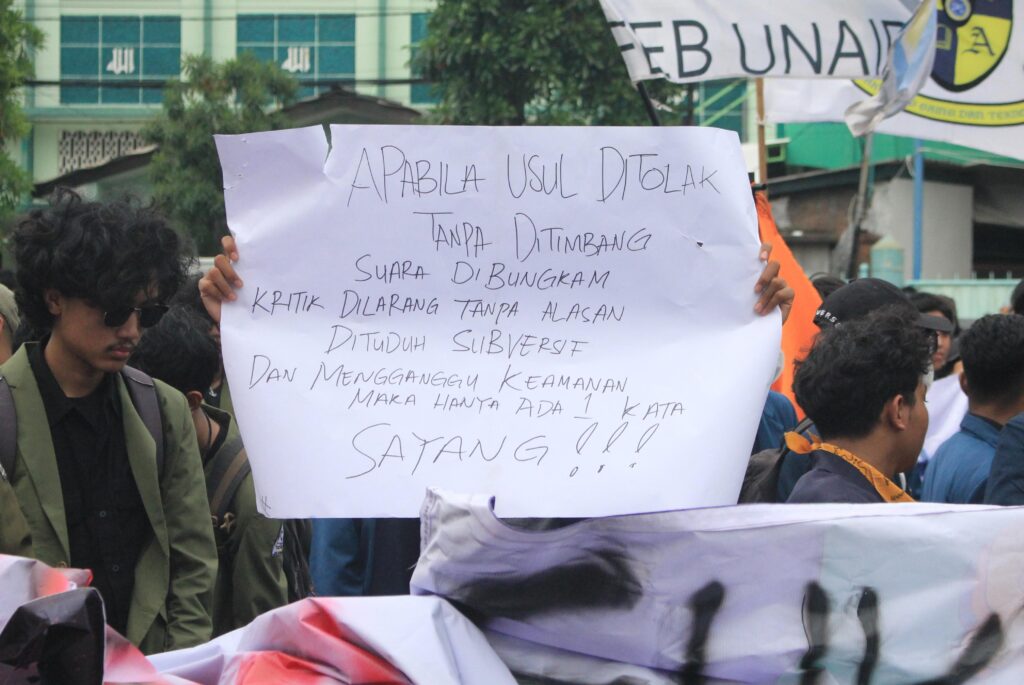 FEB UNAIR
APABILA USUL DITOLAK
TANPA DITIMBANG
SUARA DIBUNGKAM
KRITIK DILARANG TANPA ALASAN
DITUDUH SUBVERSIF
DAN MENGGANGGU KEAMANAN
MAKA HANYA ADA 1 KATA
SAYANG !!!